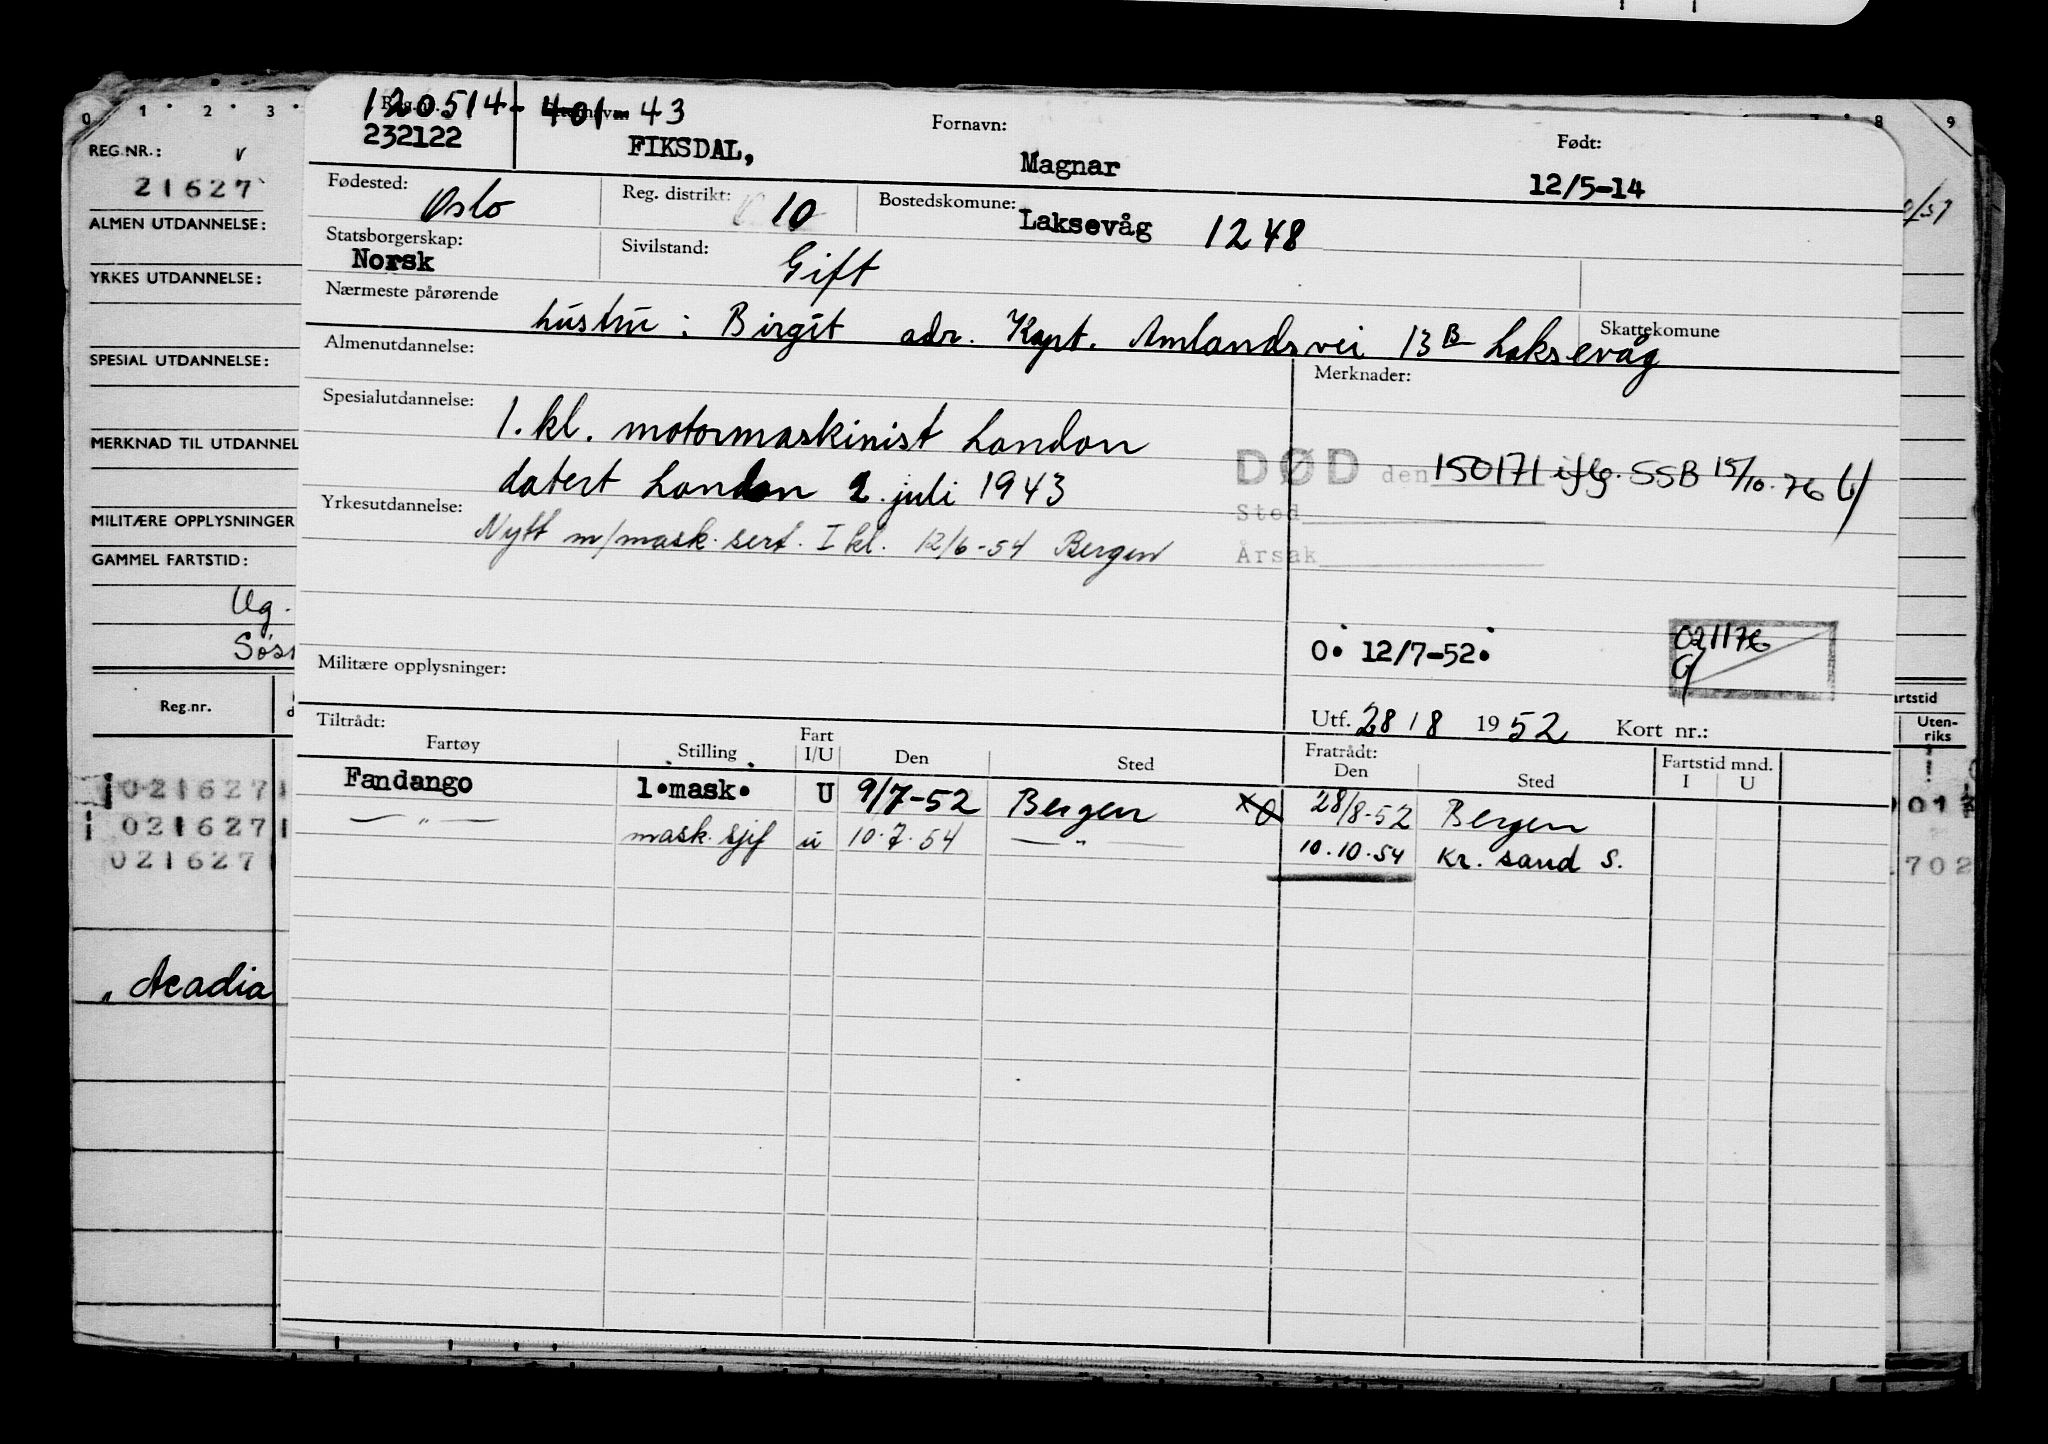 0 1 2 3 8 9
REG.NR.: v
21627
ALMEN UTDANNELSE:
YRKES UTDANNELSE:
SPESIAL UTDANNELSE:
MERKNAD TIL UTDANNEL
MILITÆRE OPPLYSNINGER
GAMMEL FARTSTID:
Ug.
Reg.nr.
021627
021627
021627
" Acadia
120514-401-43
232122 FIKSDAL, Fornavn: Magnar Født: 12/5-14
Fødested: Oslo Reg. distrikt: 10 Bostedskomune: Laksevåg 1248
Statsborgerskap: Norsk Sivilstand: Gift
Nærmeste pårørende hustru: Birgit adr. Kapt. Amlandsvei 13B Laksevåg Skattekomune
Almenutdannelse: Merknader:
Spesialutdannelse: 1. kl. motormaskinist London
datert London 2. juli 1943
DØD den 150171 iflg. SSB 15/10.76
Sted
Yrkesutdannelse: Nytt m/mask. sert. I kl. 12/6-54 Bergen
Årsak
O. 12/7-52. 021176
Militære opplysninger:
Utf. 28/8 1952 Kort nr.:
Tiltrådt: Fratrådt:
Fartøy Stilling Fart I/U Den Sted Den Sted Fartstid mnd. I U
Fandango 1.mask. U 9/7-52 Bergen 28/8-52 Bergen
— " — mask. sjef u 10.7.54 — " — 10.10.54 Kr. sand S.
artstid
Uten-
riks
702